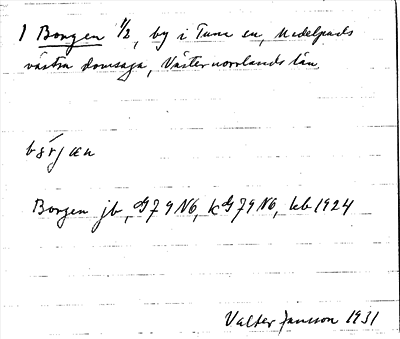 1 Borgen 1/2, by i Tuna sn, Medelpads
västra domsaga, Västernorrlands län
Borgen jb, G79N6, kG79N6, kb 1924
Valter Jansson 1931